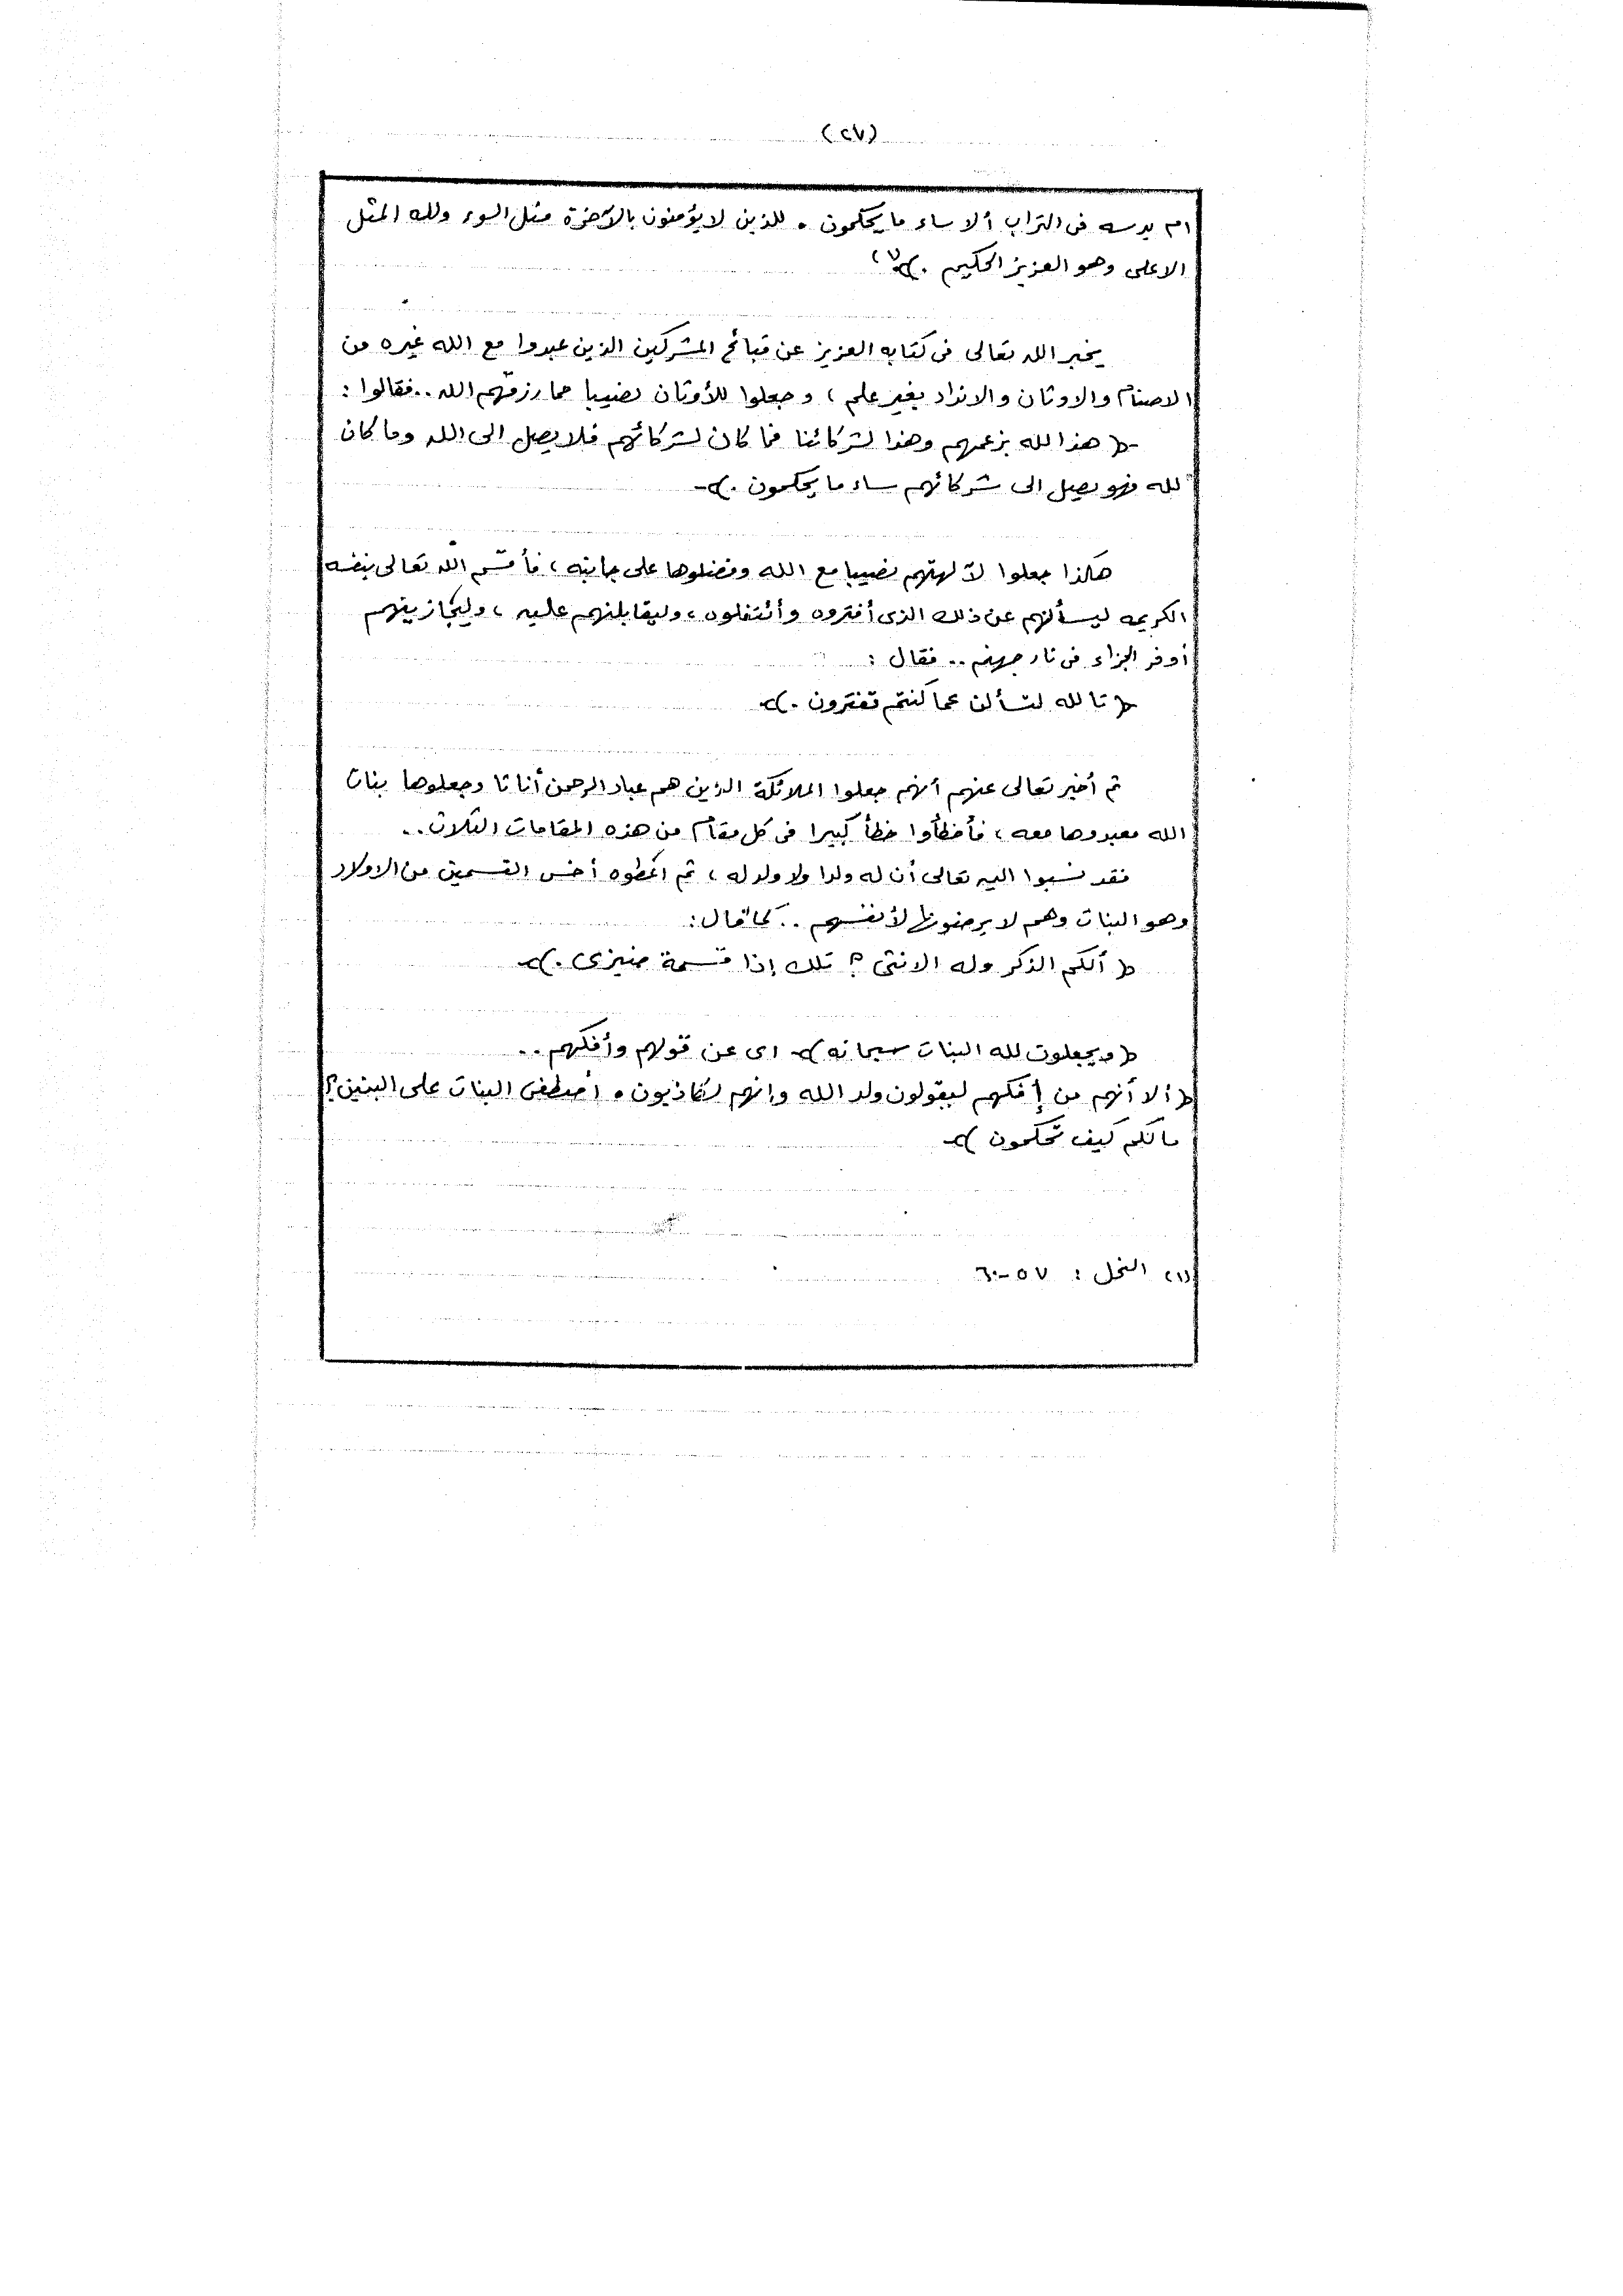 (٢٧)
ام يدسه فى التراب ألا ساء ما يحكمون . للذين لا يؤمنون بالآخرة مثل السوء ولله المثل
الاعلى وهو العزيز الحكيم .﴾(١)
يخبر الله تعالى فى كتابه العزيز عن قبائح المشركين الذين عبدوا مع الله غيره من
الاصنام والاوثان والانداد بغير علم ، وجعلوا للأوثان نصيبا مما رزقهم الله .. فقالوا :
﴿ هذا لله بزعمهم وهذا لشركائنا فما كان لشركائهم فلا يصل الى الله وما كان
لله فهو يصل الى شركائهم ساء ما يحكمون .﴾
هكذا جعلوا لآلهتهم نصيبا مع الله وفضلوها على جانبه ، فأقسم الله تعالى بنفسه
الكريمه ليسألنهم عن ذلك الذى أفتروه وأئتفلوه ، وليقابلنهم عليه ، وليجازينهم
أوفر الجزاء فى نار جهنم .. فقال :
﴿ تالله لتسألن عما كنتم تفترون .﴾
ثم أخبر تعالى عنهم أنهم جعلوا الملائكة الذين هم عباد الرحمن أناثا وجعلوها بنات
الله فعبدوها معه ، فأخطأوا خطأ كبيرا فى كل مقام من هذه المقامات الثلاث ..
فقد نسبوا اليه تعالى أن له ولدا ولا ولد له ، ثم اعطوه أخس القسمين من الاولاد
وهو البنات وهم لا يرضونها لأنفسهم .. كما قال :
﴿ ألكم الذكر وله الانثى ؟ تلك إذا قسمة ضيزى .﴾
﴿ ويجعلون لله البنات سبحانه ﴾ اى عن قولهم وأفكهم ..
﴿ ألا أنهم من إفكهم ليقولون ولد الله وإنهم لكاذبون . أصطفى البنات على البنين ؟
مالكم كيف تحكمون ﴾
(١) النحل : ٥٧-٦٠